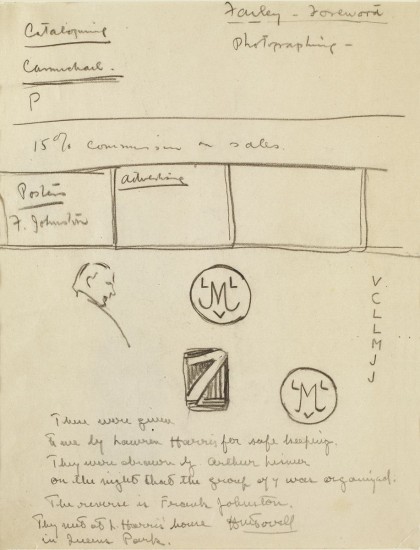 Cataloguing
Farley - Foreword
Photographing -
Carmichael.
P
15% commission on sales.
Posters
F. Johnston
Advertising
L L
M
V
7
L L
M
V
V
C
L
L
M
J
J
These were given
to me by Lawren Harris for safe keeping.
They were drawn by Arthur Lismer
on the night that the group of 7 was organized.
The reverse is Frank Johnston.
They met at L Harris' house
in Queens Park.